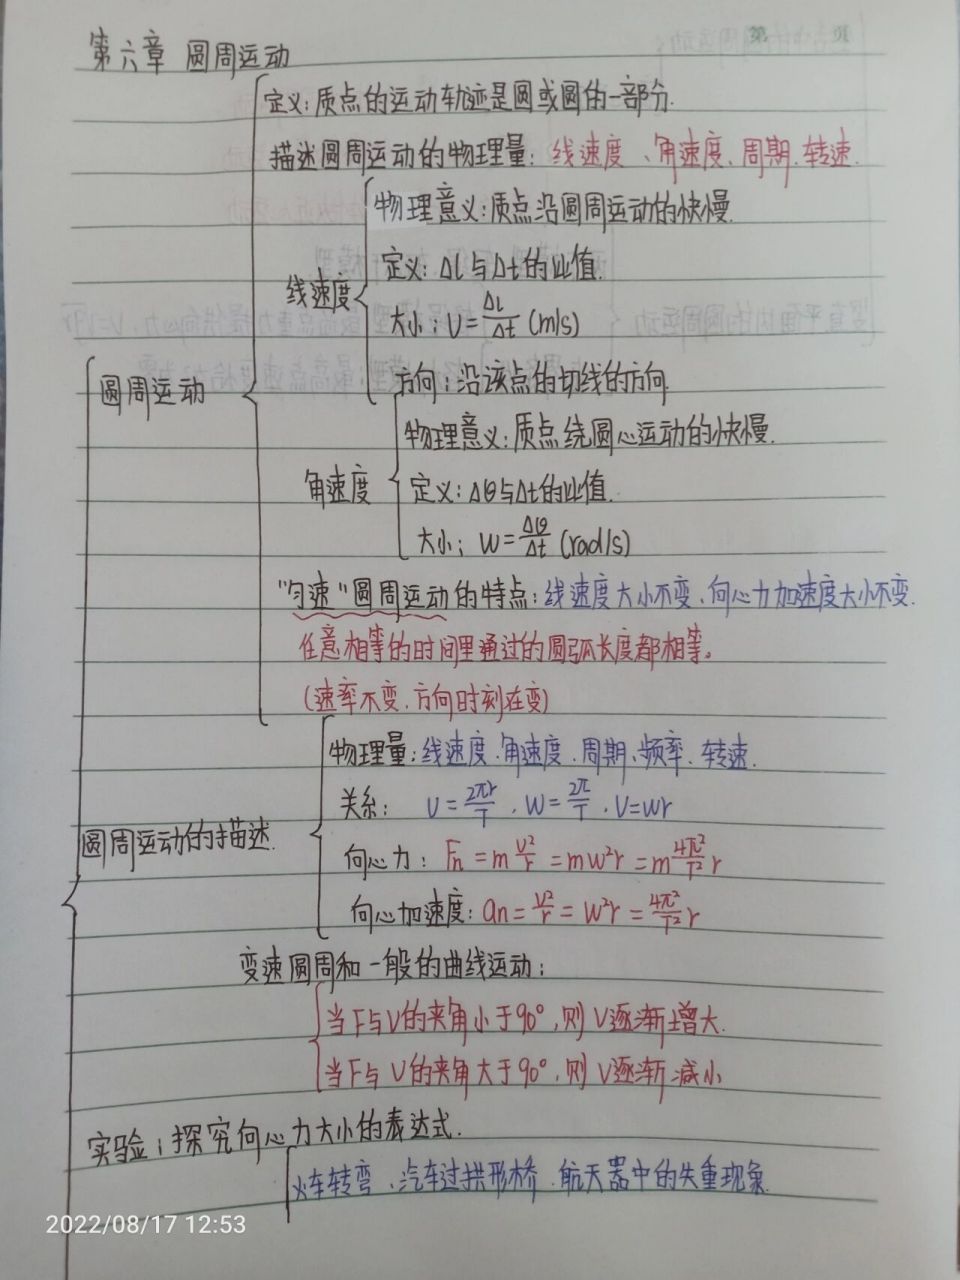 第 页
第六章 圆周运动
定义:质点的运动轨迹是圆或圆的一部分.
描述圆周运动的物理量:线速度、角速度、周期、转速.
物理意义:质点沿圆周运动的快慢.
定义:Δl与Δt的比值.
线速度
大小:V=Δl/Δt (m/s)
方向:沿该点的切线的方向.
圆周运动
物理意义:质点绕圆心运动的快慢.
角速度
定义:Δθ与Δt的比值.
大小:W=Δθ/Δt (rad/s)
"匀速"圆周运动的特点:线速度大小不变、向心力加速度大小不变.
任意相等的时间里通过的圆弧长度都相等。
(速率不变.方向时刻在变)
物理量:线速度、角速度、周期、频率、转速.
关系: V=2πr/T . W=2π/T . V=Wr
圆周运动的描述.
向心力: Fn=m V²/r =mW²r=m 4π²/T² r
向心加速度:an=V²/r=W²r=4π²/T² r
变速圆周和一般的曲线运动:
当F与V的夹角小于90°,则V逐渐增大.
当F与V的夹角大于90°,则V逐渐减小
实验:探究向心力大小的表达式.
火车转弯、汽车过拱形桥、航天器中的失重现象.
2022/08/17 12:53